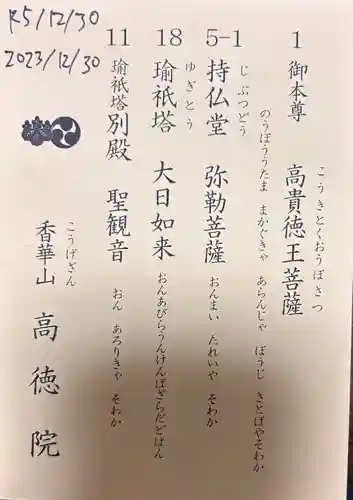 R5/12/30
2023/12/30
1 御本尊 高貴徳王菩薩
こうきとくおうぼさつ
のうぼううたま まかぐきゃ あらんじゃ ぼうじ きとばやそわか
5-1 持仏堂 弥勒菩薩 おんまい たれいや そわか
じぶつどう
18 瑜祇塔 大日如来 おんあびらうんけんばざらだどばん
ゆぎとう
11 瑜祇塔別殿 聖観音 おん あろりきゃ そわか
こうげざん
香華山 高徳院